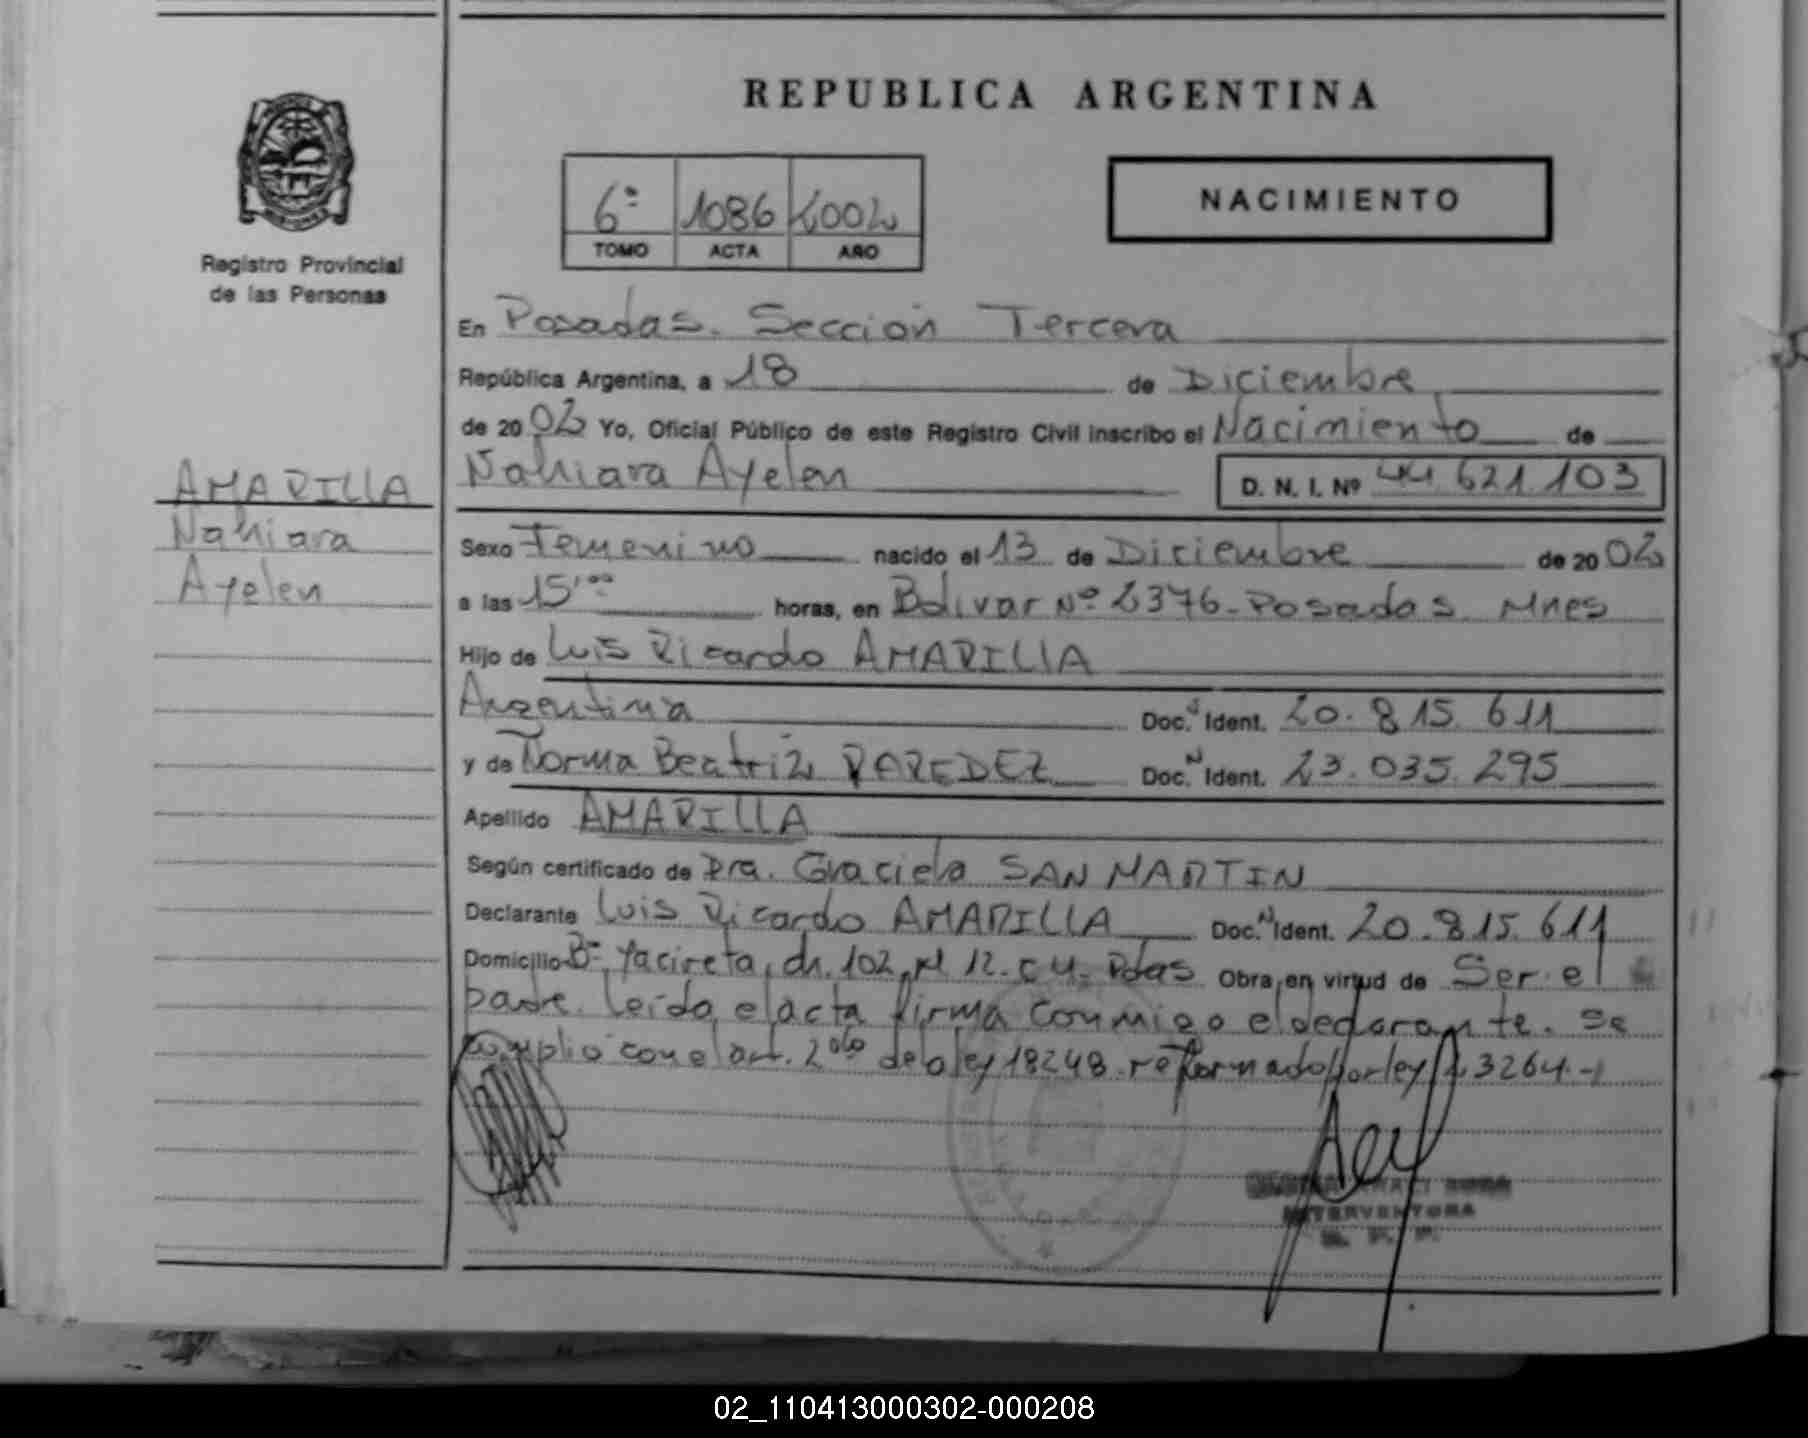 REPUBLICA ARGENTINA
6º 1086 2002
TOMO ACTA AÑO
NACIMIENTO
Registro Provincial
de las Personas
AMARILLA
Nahiara
Ayelen
En Posadas. Sección Tercera
República Argentina, a 18 de Diciembre
de 2002 Yo, Oficial Público de este Registro Civil inscribo el Nacimiento de
Nahiara Ayelen D. N. I. Nº 44.621.103
Sexo Femenino nacido el 13 de Diciembre de 2002
a las 15,00 horas, en Bolivar Nº 2376-Posadas. Mnes
Hijo de Luis Ricardo AMARILLA
Argentina Doc. Ident. 20.815.611
y de Norma Beatriz PAREDEZ Doc.N Ident. 23.035.295
Apellido AMARILLA
Según certificado de Dra. Graciela SAN MARTIN
Declarante Luis Ricardo AMARILLA Doc.N Ident. 20.815.611
Domicilio Bº Yacireta, ch. 102, M 12. c 4. Pdas Obra en virtud de Ser el
padre. Leída el acta firma conmigo el declarante. Se
cumplió con el art. 2do de la ley 18248 reformado por ley 23264.-
INTERVENTORA
R. P. P.
02_110413000302-000208